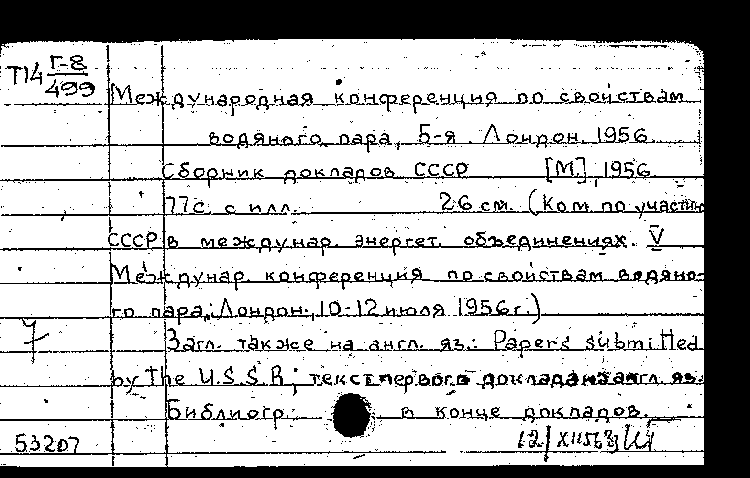 Т14 Г-8/499
Международная конференция по свойствам
водяного пара, 5-я. Лондон. 1956.
Сборник докладов СССР [М.], 1956
77с. с илл. 26 см. (Ком. по участию
СССР в междунар. энергет. объединениях. V
Междунар. конференция по свойствам водяно-
го пара, Лондон, 10-12 июля 1956г.)
7
Загл. также на англ. яз.: Papers submitted
by the U.S.S.R; текст первого доклада на англ. яз.
Библиогр. в конце докладов.
53207 12/XII56